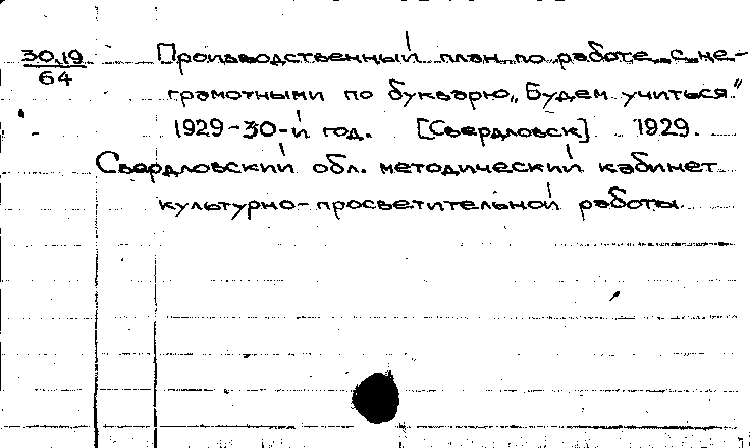 30.19
64
Производственный план по работе с не-
грамотными по букварю „Будем учиться."
1929-30-й год. [Свердловск]. 1929.
Свердловский обл. методический кабинет
культурно-просветительной работы.